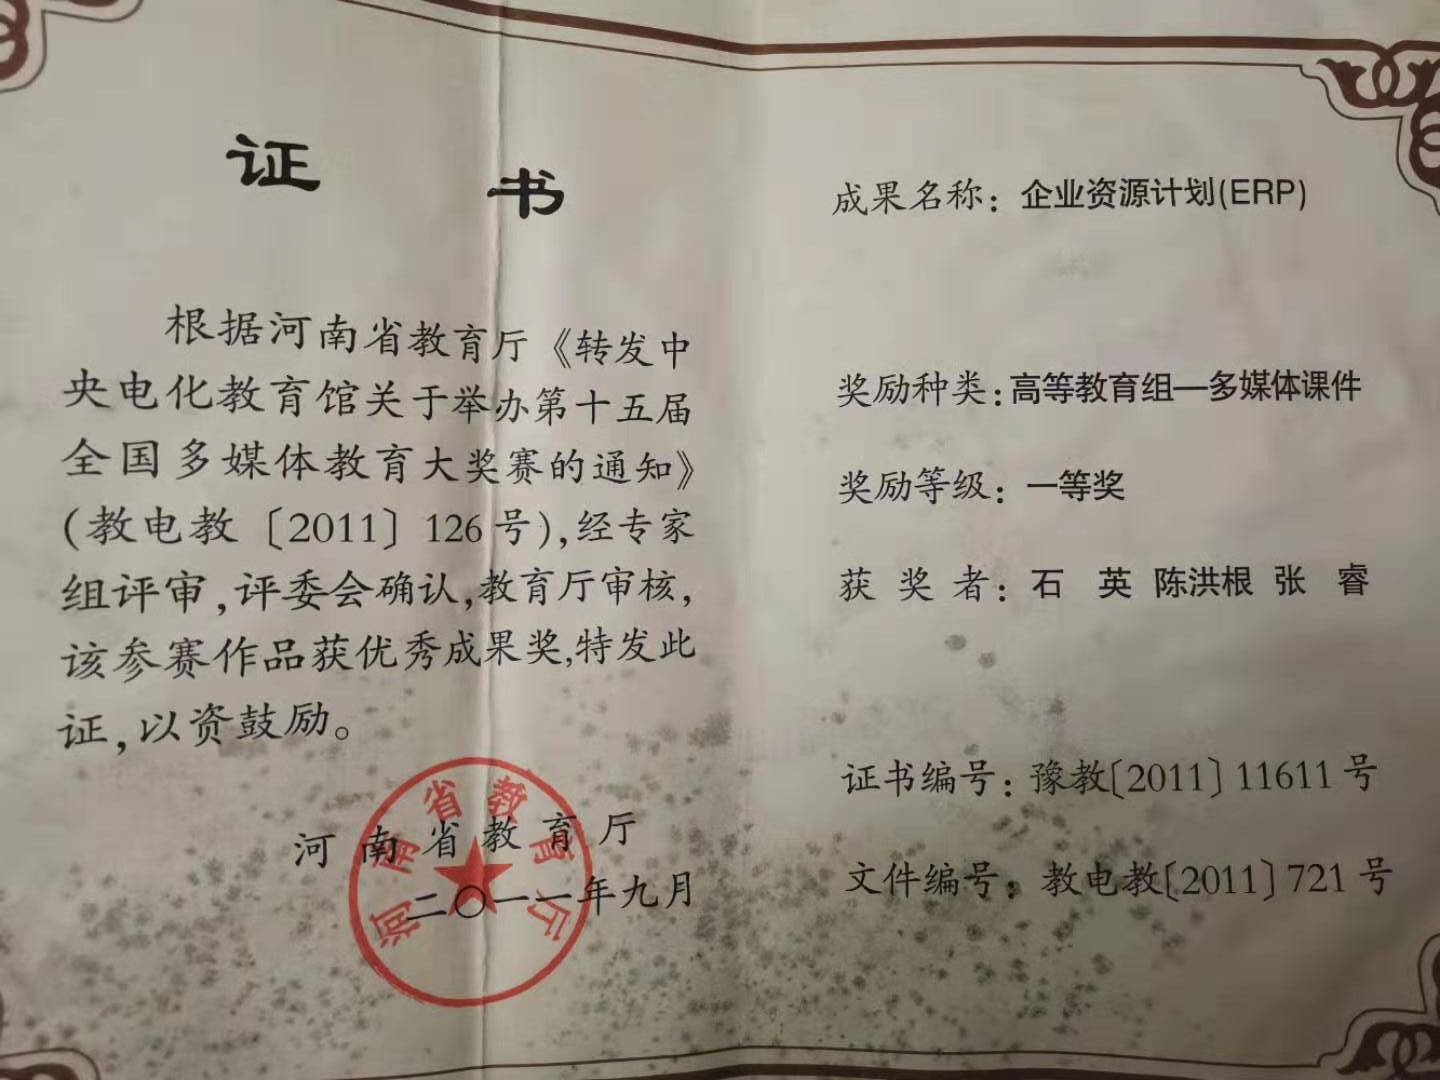 证 书
根据河南省教育厅《转发中
央电化教育馆关于举办第十五届
全国多媒体教育大奖赛的通知》
(教电教〔2011〕126号),经专家
组评审,评委会确认,教育厅审核,
该参赛作品获优秀成果奖,特发此
证,以资鼓励。
河南省教育厅
二〇一一年九月
河南省教育厅
成果名称：企业资源计划(ERP)
奖励种类：高等教育组—多媒体课件
奖励等级：一等奖
获 奖 者：石 英 陈洪根 张 睿
证书编号：豫教〔2011〕11611号
文件编号：教电教〔2011〕721号